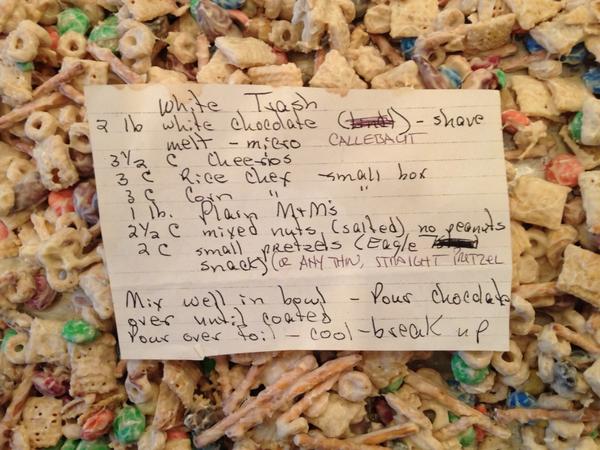 White Trash
2 lb white chocolate ( ) - shave
melt - micro CALLEBAUT
3 1/2 C Cheerios
3 C Rice Chex - small box
3 C Corn " "
1 lb. Plain M+M's
2 1/2 C mixed nuts (salted) no peanuts
2 C small pretzels (Eagle
snack) (OR ANY THIN, STRAIGHT PRETZEL
Mix well in bowl - Pour chocolate
over until coated
Pour over foil - cool - break up